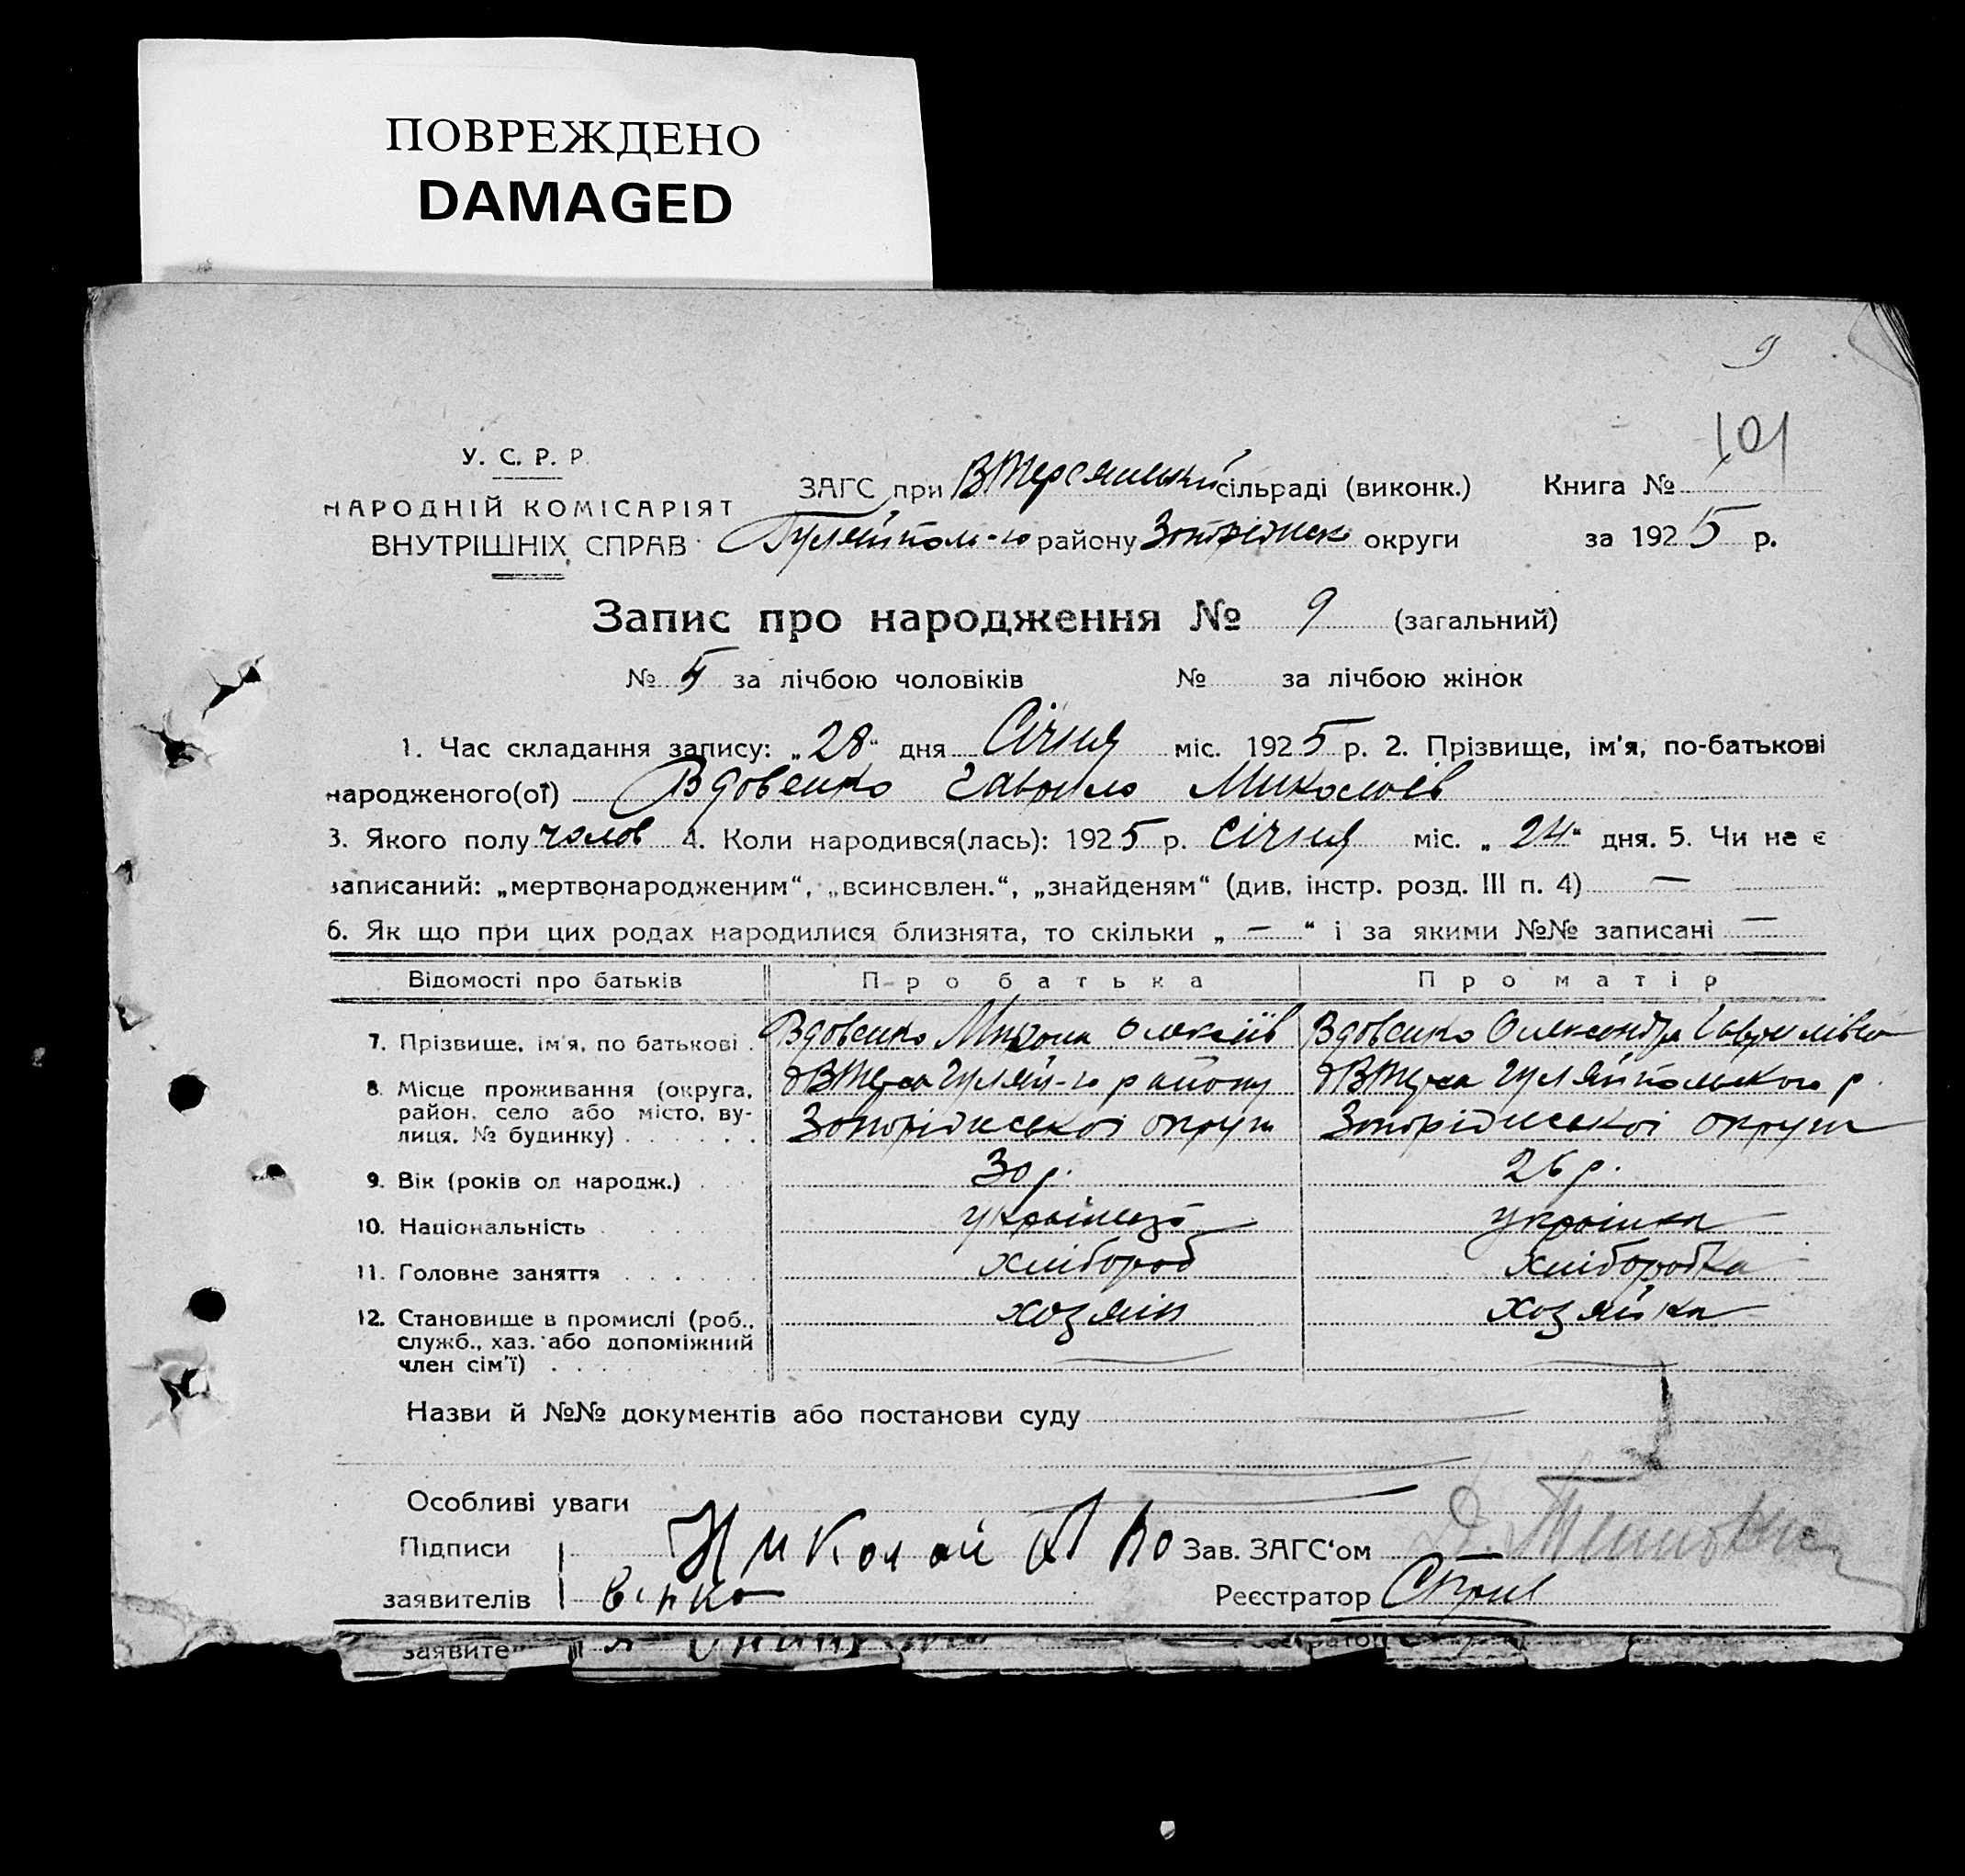 ПОВРЕЖДЕНО
DAMAGED
9
101
У. С. Р. Р.
НАРОДНІЙ КОМІСАРІЯТ
ВНУТРІШНІХ СПРАВ
ЗАГС при ВТерсянській сільраді (виконк.) Книга №
Гуляйпол-го району Запоріжск округи за 1925 р.
Запис про народження № 9 (загальний)
№ 5 за лічбою чоловіків № за лічбою жінок
1. Час складання запису: „28“ дня Січня міс. 1925 р. 2. Прізвище, ім'я, по-батькові
народженого(ої) Вдовенко Гаврило Миколаїв
3. Якого полу чолов 4. Коли народився(лась): 1925 р. січня міс. „24“ дня. 5. Чи не є
записаний: „мертвонародженим“, „всиновлен.“, „знайденям“ (див. інстр. розд. III п. 4) —
6. Як що при цих родах народилися близнята, то скільки „—“ і за якими №№ записані —
Відомості про батьків Про батька Про матір
7. Прізвище, ім'я, по батькові . Вдовенко Микола Олексіїв Вдовенко Олександра Гаврилівна
8. Місце проживання (округа, район, село або місто, вулиця, № будинку) . . . . . .
ВТерса Гуляй-го району ВТерса Гуляйпольського р.
Запоріжської округи Запоріжської округи
9. Вік (років од народж.) . . 30 р. 26 р.
10. Національність . . . . українець українка
11. Головне заняття . . . . . хлібороб хліборобка
12. Становище в промислі (роб., служб., хаз. або допоміжний член сім'ї) . . . хозяін хозяйка
Назви й №№ документів або постанови суду
Особливі уваги
Підписи Николай Зав. ЗАГС'ом
заявителів Реєстратор
заявите